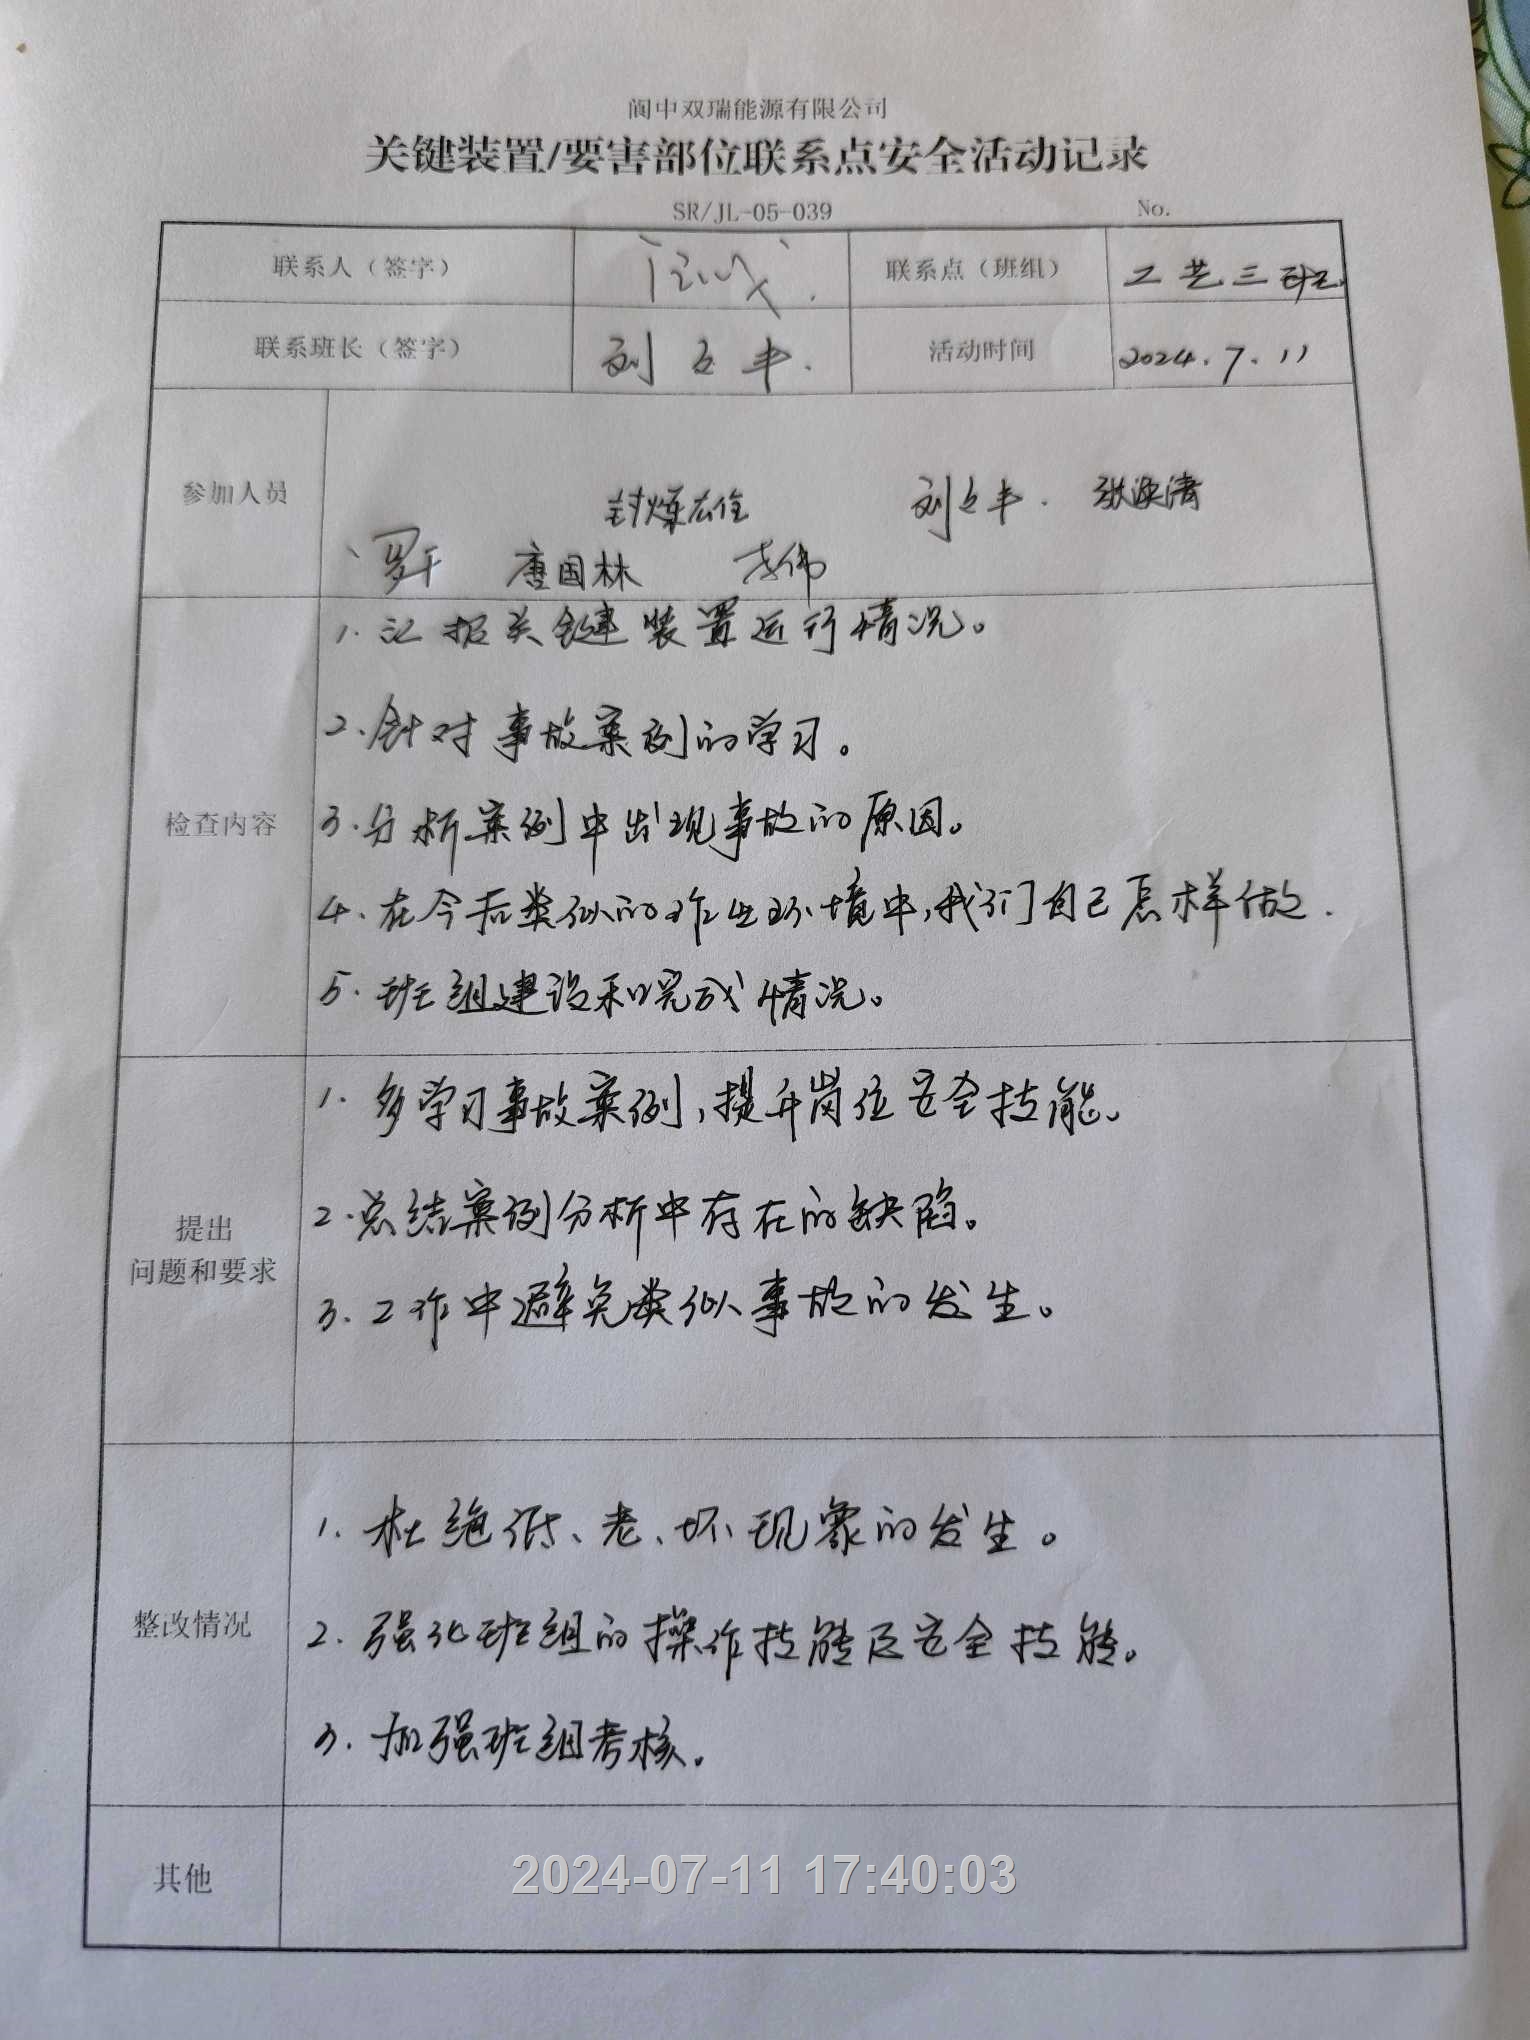 阆中双瑞能源有限公司
关键装置/要害部位联系点安全活动记录
SR/JL-05-039 No.
联系人（签字） 联系点（班组） 工艺三班
联系班长（签字） 刘 丰. 活动时间 2024.7.11
参加人员
刘 丰. 张 清
罗干 唐国林 李伟
检查内容
1.汇报关键装置运行情况。
2.针对事故案例的学习。
3.分析案例中出现事故的原因。
4.在今后类似的作业环境中,我们自己怎样做.
5.班组建设和完成情况。
提出
问题和要求
1.多学习事故案例,提升岗位安全技能。
2.总结案例分析中存在的缺陷。
3.工作中避免类似事故的发生。
整改情况
1.杜绝低、老、坏现象的发生。
2.强化班组的操作技能及安全技能。
3.加强班组考核。
其他
2024-07-11 17:40:03